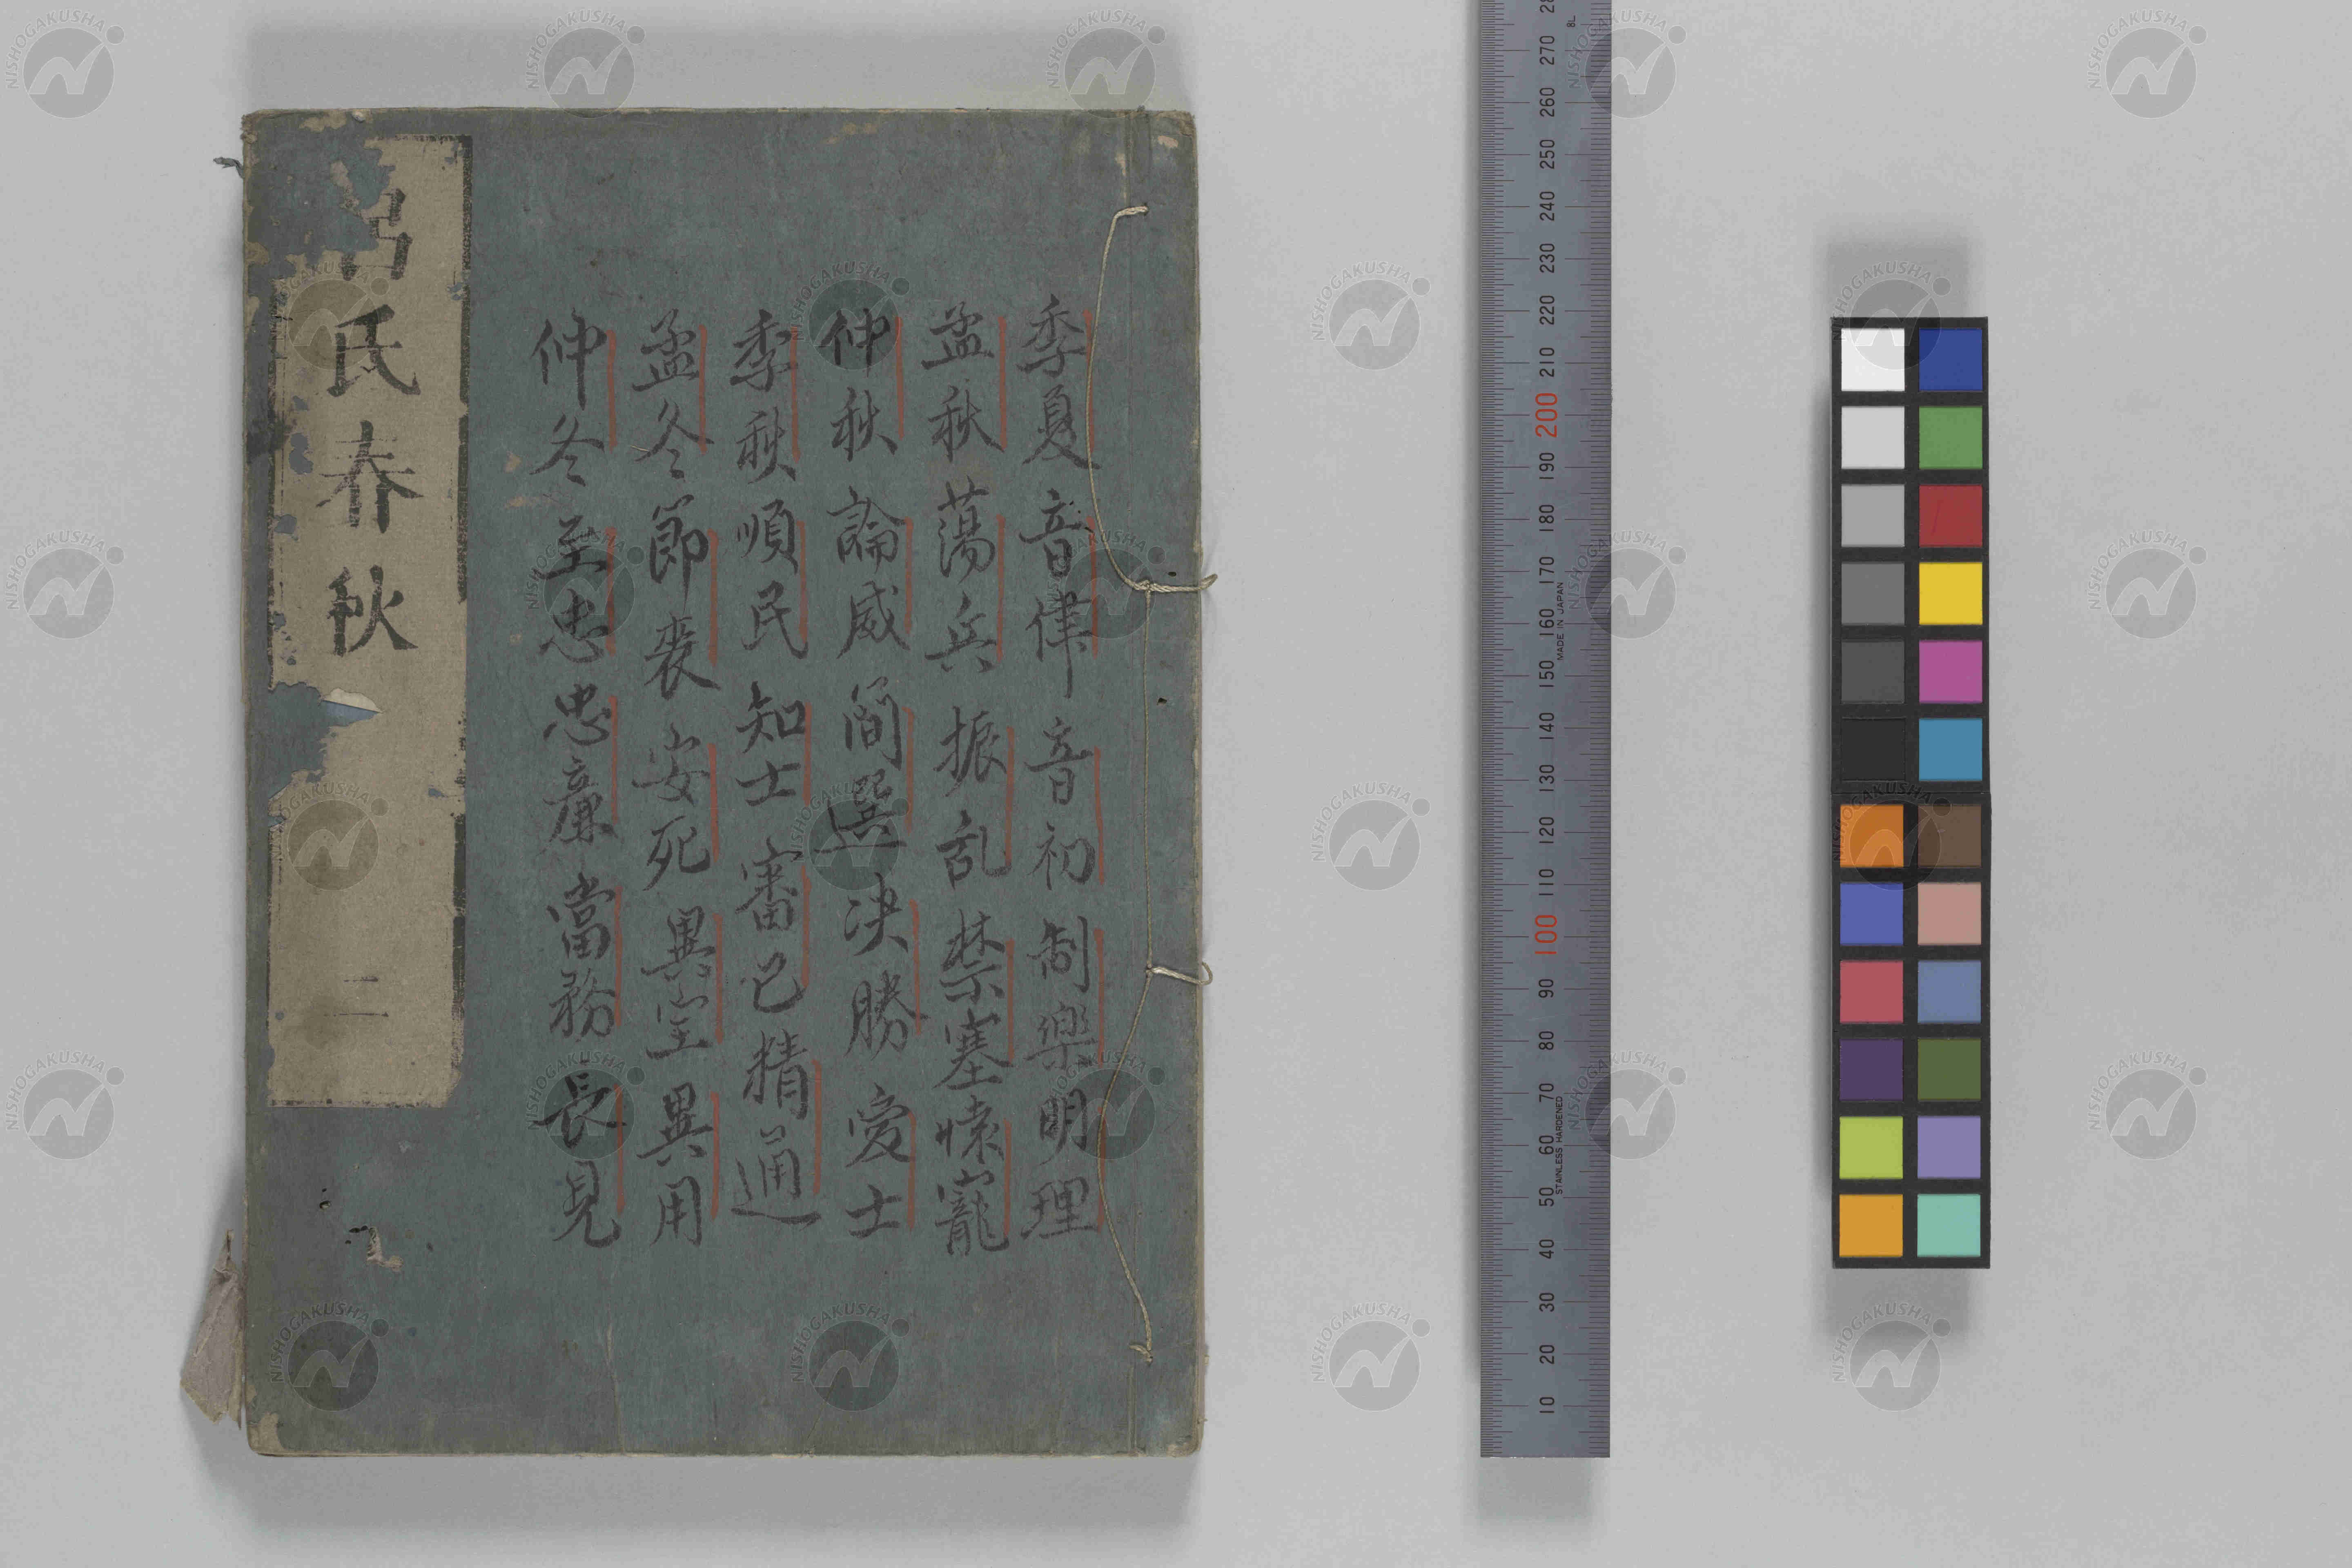 季夏 音律 音初 制樂 明理
孟秋 蕩兵 振乱 禁塞 懷寵
仲秋 論威 簡選 决勝 愛士
季秋 順民 知士 審己 精通
孟冬 節喪 安死 異宝 異用
仲冬 至忠 忠廉 當務 長見
呂氏春秋 二
280
270
260
250
240
230
220
210
200
190
180
170
160
150
140
130
120
110
100
90
80
70
60
50
40
30
20
10
MADE IN JAPAN
STAINLESS HARDENED
NISHOGAKUSHA